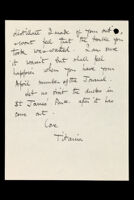 distillate I made of your out-
won't feel that the trouble you
took was wasted. I am sure
it wasn't but shall feel
happier when you have your
April number of the Journal.
Let us visit the ducks in
St James' Park after it has
come out.
Love